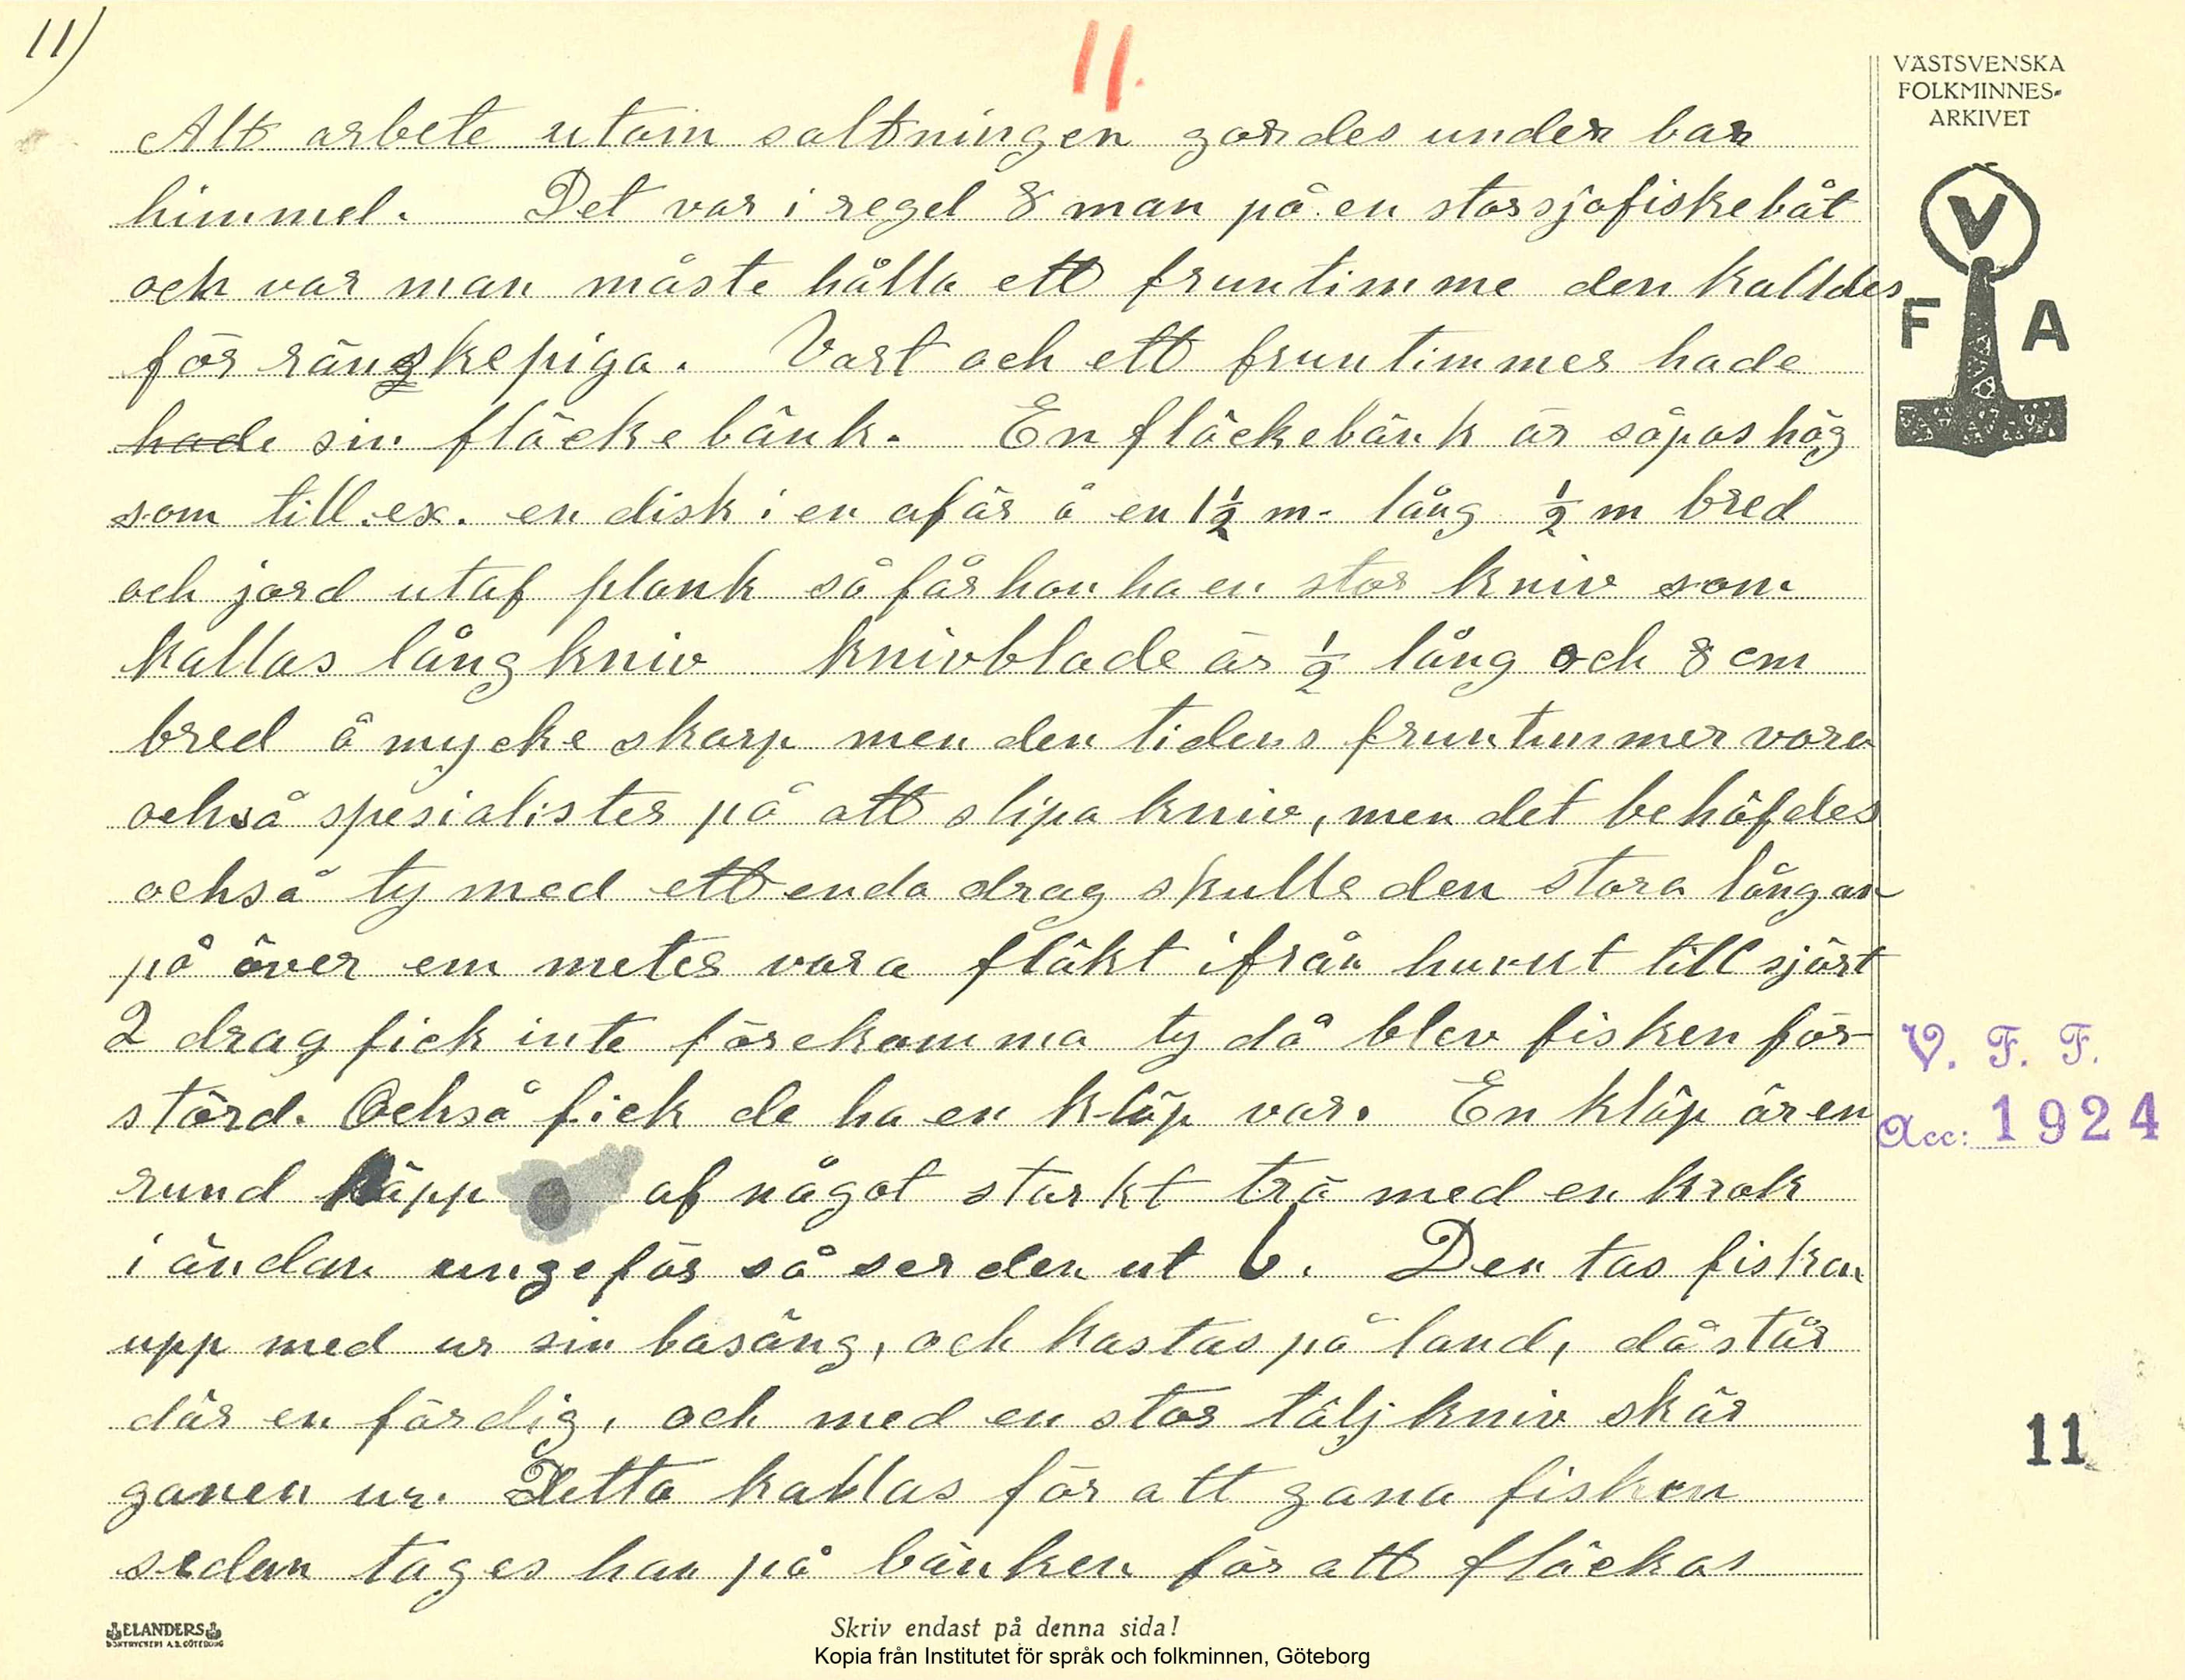 11)
11.
VÄSTSVENSKA
FOLKMINNES-
ARKIVET
V
F A
Alt arbete utom saltningen gordes under bar
himmel. Det var i regel 8 man på en storsjöfiskebåt
och var man måste hålla ett fruntimme den kalldes
för rängskepiga. Vart och ett fruntimmer hade
hade sin fläckebänk. En fläckebänk är såpas hög
som till.ex. en disk i en afär å en 1½ m. lång ½ m bred
och jord utaf plank så får hon ha en stor kniv som
kallas långkniv knivblade är ½ lång och 8 cm
bred å mycke skarp men den tidens fruntimmer vara
också spesialister på att slipa kniv, men det behöfdes
också ty med ett enda drag skulle den stora långan
på över em meter vara fläkt ifrån huvut till sjört
2 drag fick inte förekomma ty då blev fisken för-
störd. Också fick de ha en kläp var. En kläp är en
rund käpp af något starkt trä med en krok
i ändan ungefär så ser den ut. Den tas fiskan
upp med ur sin basäng, och kastas på land, då står
där en färdig, och med en stor täljkniv skär
ganen ur. Detta kallas för att gana fisken
sedan tages han på bänken för att fläckas
V. F. F.
Acc: 1924
11
ELANDERS
BOKTRYCKERI A.B. GÖTEBORG
Skriv endast på denna sida!
Kopia från Institutet för språk och folkminnen, Göteborg